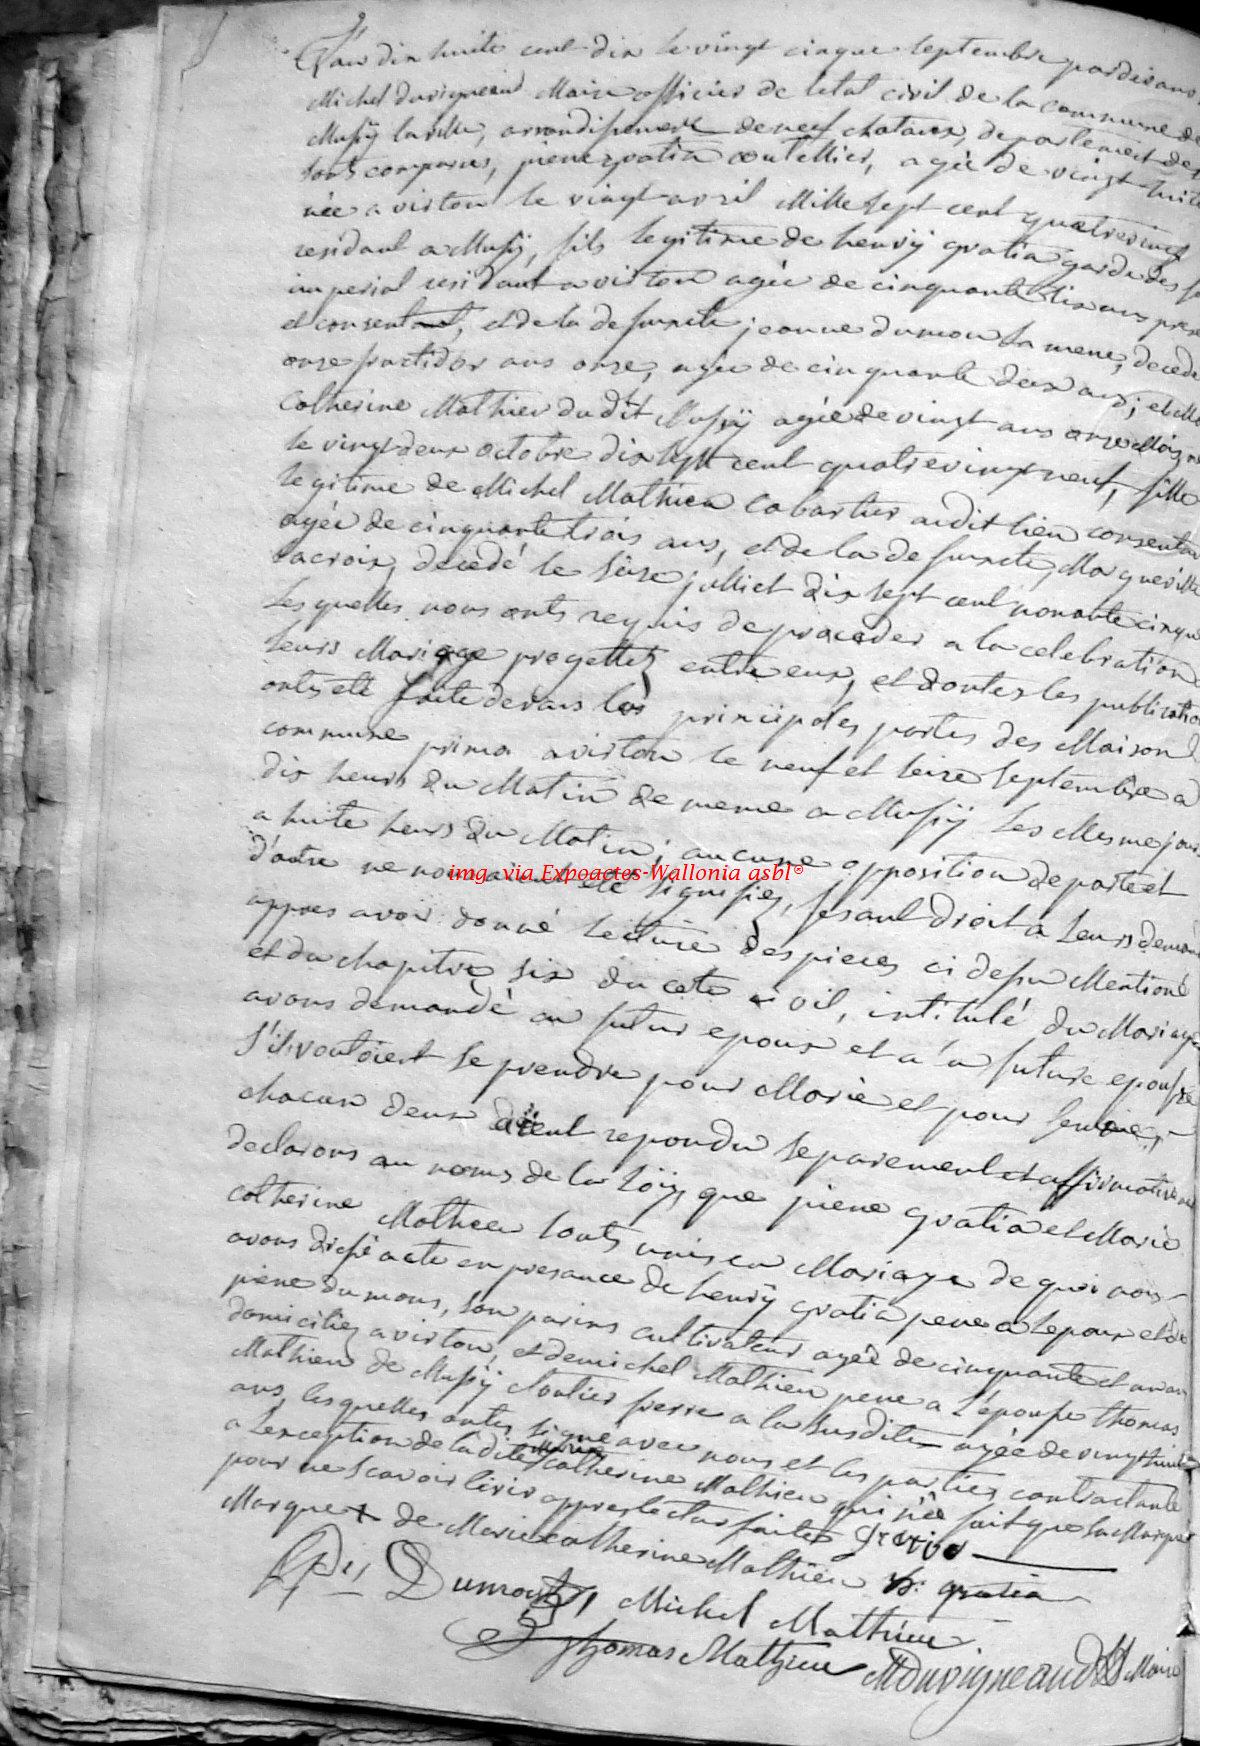 L'an dix huite cent dix le vingt cinque septembre pardevant
Michel duvigneaud Maire officier de létat civil de la commune de
Mussÿ la ville, arrondissement de neuf chataux, departement des
sont comparus, piere gratia coutellier, agée de vingt huit
née a virton le vingt avril Mille sept cent quatrevingt
residant a Mussÿ, fils legitime de henrÿ gratia garde des
imperial residant a virton agée de cinquante six ans
et consentant, et de la defuncte jeanne dumon sa mere, decedé
onze fructidor ans onze, agée de cinquante deux ans; et
Catherine Mathieu dudit Mussÿ agée de vingt ans onze Mois
le vingt deux octobre dix sept cent quatrevingt neuf, fille
legitime de Michel Mathieu cabartier audit lieu consentan
agée de cinquante trois ans, et de la defuncte, Margueritte
lacroix, decedé le seize julliet dix sept cent nonante cinque
Les quelles nous onts requis de proceder a la celebration
leurs Mariage progettez entre eux, et dontes les publication
onts eté faite devans les principales portes des Maison
commune prima a virton le neuf et seize septembre a
dix heurs du Matin de meme a Mussÿ les Mesme jour
a huite heurs du Matin; aucune opposition de parte et
d'autre ne nous aient eté signifiez, fesant droit a Leurs deman
appres avoir donné lecture des pieces ci dessu Mentioné
et du chapitre six du cote civil, intitulé du Mariage
avons demandé au futur epoux et a la future epousse
s'ils vouloient se prendre pour Marie et pour femme,
chacun deux aient repondu separement et affirmative
declarons au noms de la Loÿ, que piere gratia et Marie
catherine Mathieu sonts unis en Mariage de quoi nous
avons dressé acte en presance de henrÿ gratia pere a lepoux et de
piere dumons, son parins cultivateur agée de cinquante et un ans
domiciliez a virton, et de michel Mathieu pere a L'épousse thomas
Mathieu de Mussÿ cloutier frere a la susdite agée de vingt huit
ans, lesquelles ontes signe avec nous et les parties contractante
a Lexception de la dite marie catherine Mathieu qui n'ée fait que sa Marque
pour ne scavoir lecrir appres lectur faites
Marque + de Marie catherine Mathieu h: gratia
Dumont Michel Mathieu
thomas Mathieu MDuvigneaud Maire
img. via Expoactes-Wallonia asbl©